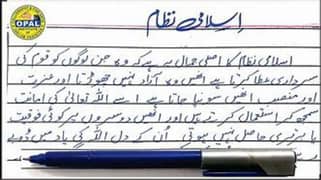 OPAL
اسلامی نظام
اسلامی نظام کا اصلی جمال یہ ہے کہ وہ جن لوگوں کو قوم کی
سرداری عطا کرتا ہے انھیں وہ آزاد نہیں چھوڑتا اور عزت
منصب انھیں سونپا جاتا ہے اسے اللہ تعالیٰ کی امانت
سمجھ کر استعمال کرتے ہیں اور انھیں دوسروں پر کوئی فوقیت
یا برتری حاصل نہیں ہوتی۔ اُن کے دل اللہ کی یاد میں ڈوبے